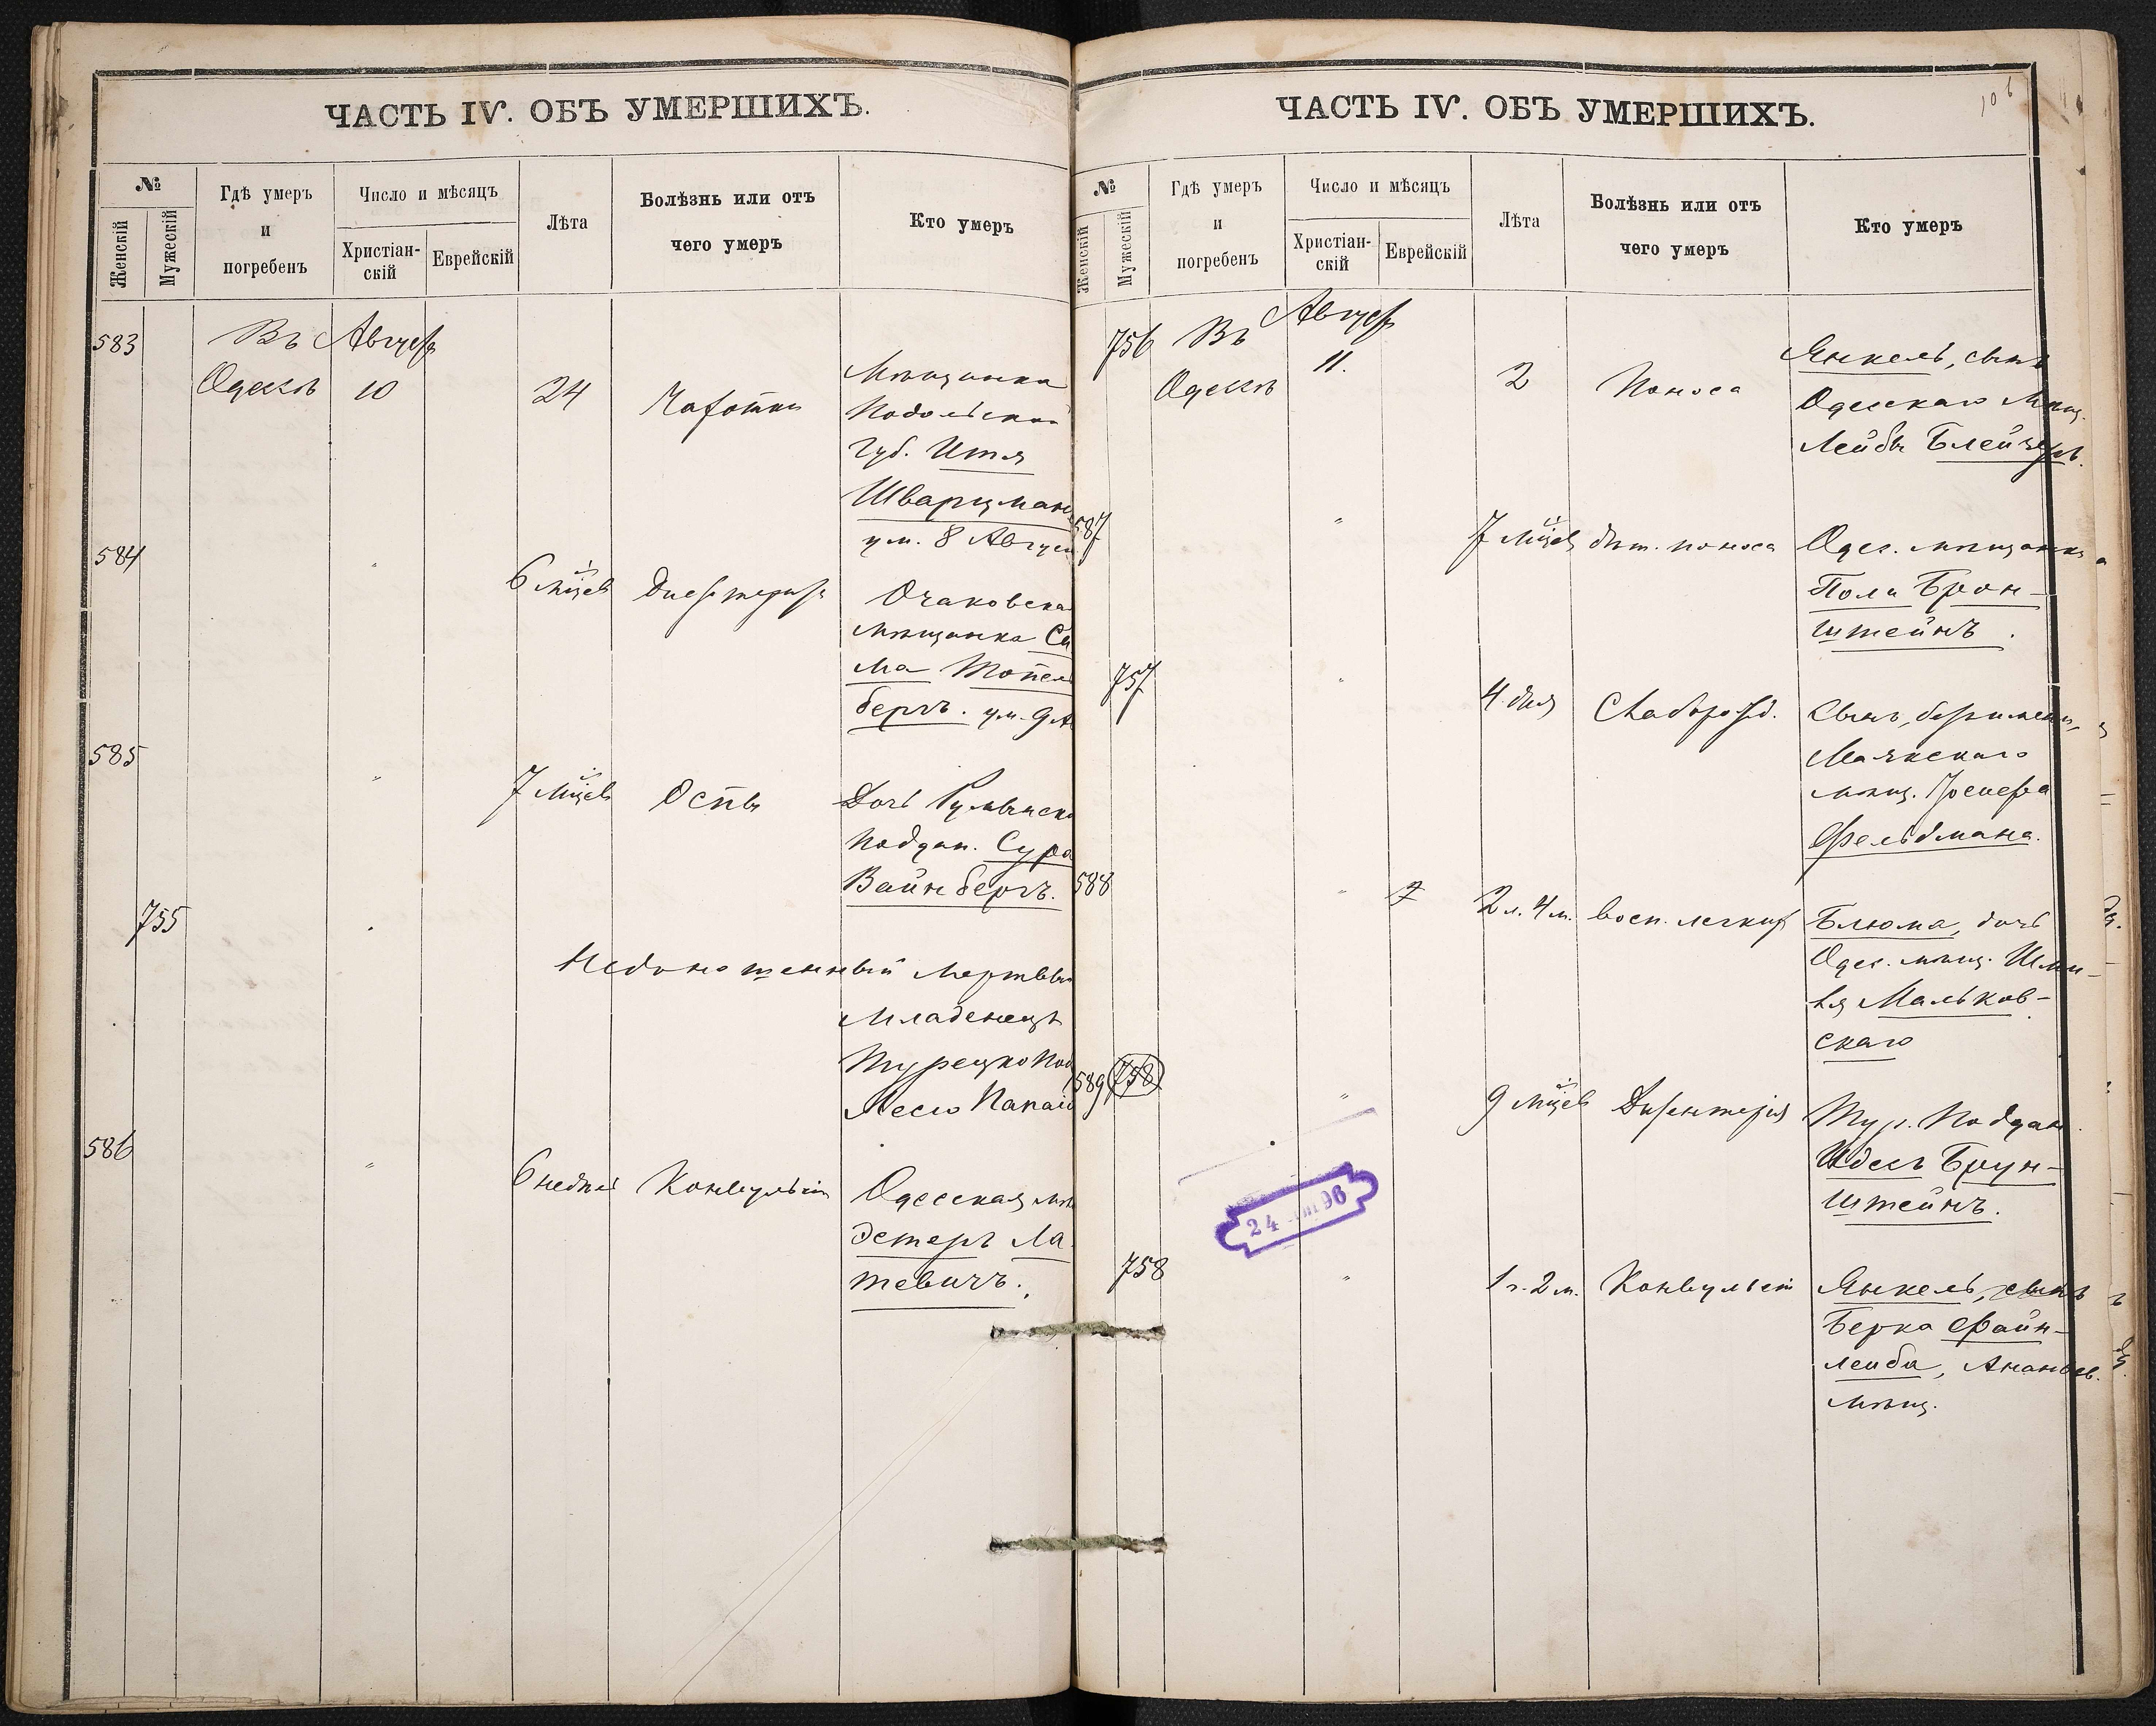 ЧАСТЬ IV. ОБЪ УМЕРШИХЪ.
№
Женскій
Мужескій
Гдѣ умеръ
и
погребенъ
Число и мѣсяцъ
Христіан-
скій
Еврейскій
Лѣта
Болѣзнь или отъ
чего умеръ
Кто умеръ
583
Въ
Одессѣ
Августа
10
24
Чахотки
Мѣщанка
Подольской
Губ. Итя
Шварцман
ум. 8 Август
584
"
6 мцевъ
Очаковска
мѣщанка Си
ма Топел
бергъ. ум. 9 А
585
"
7 мцевъ
Оспы
Дочь Румынско
поддан. Сура
Вайнбергъ.
755
"
Недоношенный мертвый
младенецъ
Турецко под
586
"
6 недѣль
Конвульсіи
Одесская мѣ
Эстеръ Ла
тевичъ.
ЧАСТЬ IV. ОБЪ УМЕРШИХЪ.
106
№
Женскій
Мужескій
Гдѣ умеръ
и
погребенъ
Число и мѣсяцъ
Христіан-
скій
Еврейскій
Лѣта
Болѣзнь или отъ
чего умеръ
Кто умеръ
756
Въ
Одессѣ
Августа
11.
2
Поноса
Янкель, сынъ
Одесскаго Мѣщ.
Лейбы Блейзеръ.
587
"
7 мцевъ
дѣт. поноса
Одес. мѣщанка
Поли Брон-
штейнъ.
757
"
4 дня
Слаборожд.
Сынъ, безъимен.,
Маякскаго
мѣщ. Іосифа
Фельдмана.
588
"
7
2 л. 4 м.
восп. легкихъ
Блюма, дочь
Одес. мѣщ. Шми-
ля Мальков-
скаго
589
758
"
9 мцевъ
Дизентерія
Тур. поддан.
Идесъ Брун-
штейнъ.
24 96
758
"
1 г. 2 м.
Конвульсіи
Янкель, сынъ
Берка Файн-
лейба, Ананьев.
мѣщ.